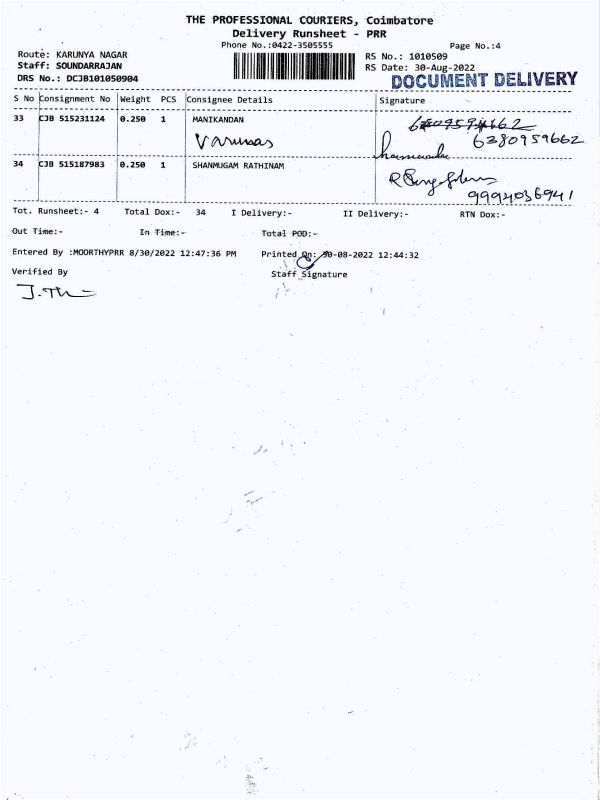 THE PROFESSIONAL COURIERS, Coimbatore
Delivery Runsheet - PRR
Phone No.:0422-3505555
Page No.:4
Route: KARUNYA NAGAR
RS No.: 1010509
Staff: SOUNDARRAJAN
RS Date: 30-Aug-2022
DRS No.: DCJB101050904
DOCUMENT DELIVERY
S No Consignment No Weight PCS Consignee Details Signature
33 CJB 515231124 0.250 1 MANIKANDAN
6380959662
34 CJB 515187983 0.250 1 SHANMUGAM RATHINAM
9994036941
Tot. Runsheet:- 4 Total Dox:- 34 I Delivery:- II Delivery:- RTN Dox:-
Out Time:- In Time:- Total POD:-
Entered By :MOORTHYPRR 8/30/2022 12:47:36 PM Printed On: 30-08-2022 12:44:32
Verified By Staff Signature